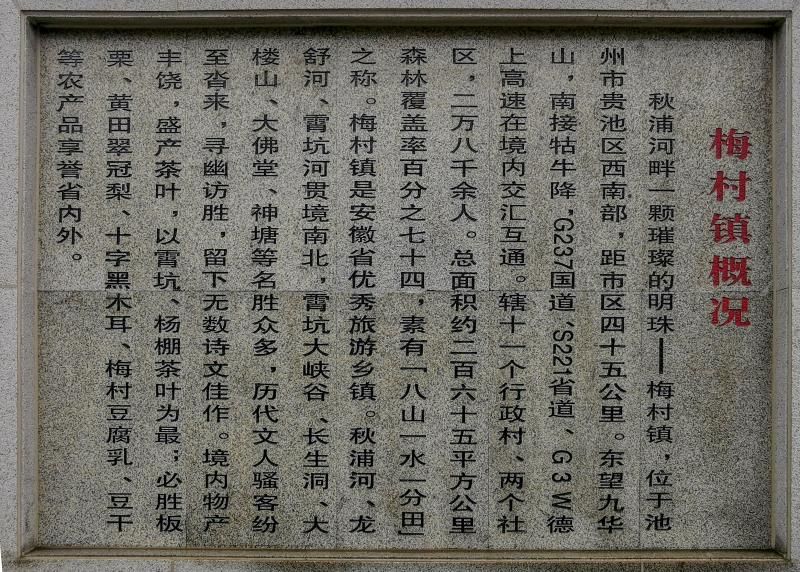 梅村镇概况
秋浦河畔一颗璀璨的明珠——梅村镇，位于池
州市贵池区西南部，距市区四十五公里。东望九华
山，南接牯牛降，G237国道、S221省道、G3W德
上高速在境内交汇互通。辖十一个行政村、两个社
区，二万八千余人。总面积约二百六十五平方公里
森林覆盖率百分之七十四，素有「八山一水一分田」
之称。梅村镇是安徽省优秀旅游乡镇。秋浦河、龙
舒河、霄坑河贯境南北，霄坑大峡谷、长生洞、大
楼山、大佛堂、神塘等名胜众多，历代文人骚客纷
至沓来，寻幽访胜，留下无数诗文佳作。境内物产
丰饶，盛产茶叶，以霄坑、杨棚茶叶为最；必胜板
栗、黄田翠冠梨、十字黑木耳、梅村豆腐乳、豆干
等农产品享誉省内外。